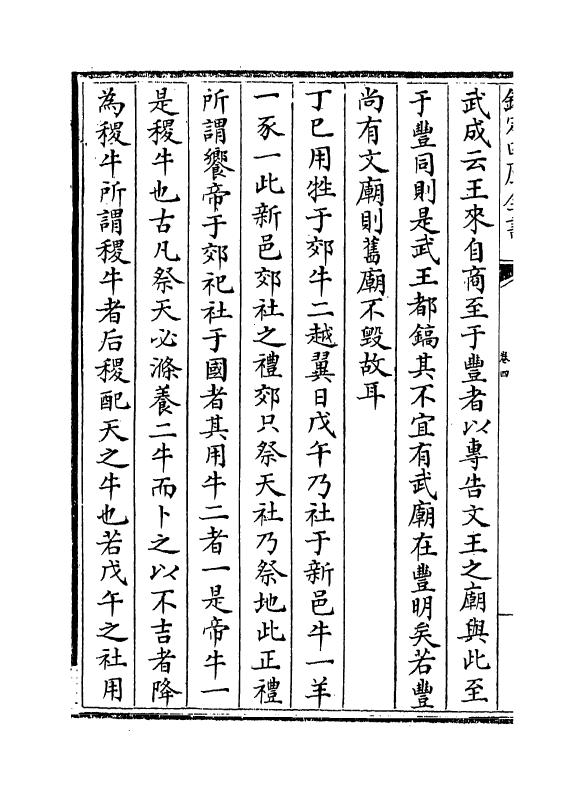 欽定四庫全書
卷四
武成云王來自商至于豐者以專告文王之廟與此至
于豐同則是武王都鎬其不宜有武廟在豐明矣若豐
尚有文廟則舊廟不毀故耳
丁巳用牲于郊牛二越翼日戊午乃社于新邑牛一羊
一豕一此新邑郊社之禮郊只祭天社乃祭地此正禮
所謂饗帝于郊祀社于國者其用牛二者一是帝牛一
是稷牛也古凡祭天必滌養二牛而卜之以不吉者降
為稷牛所謂稷牛者后稷配天之牛也若戊午之社用